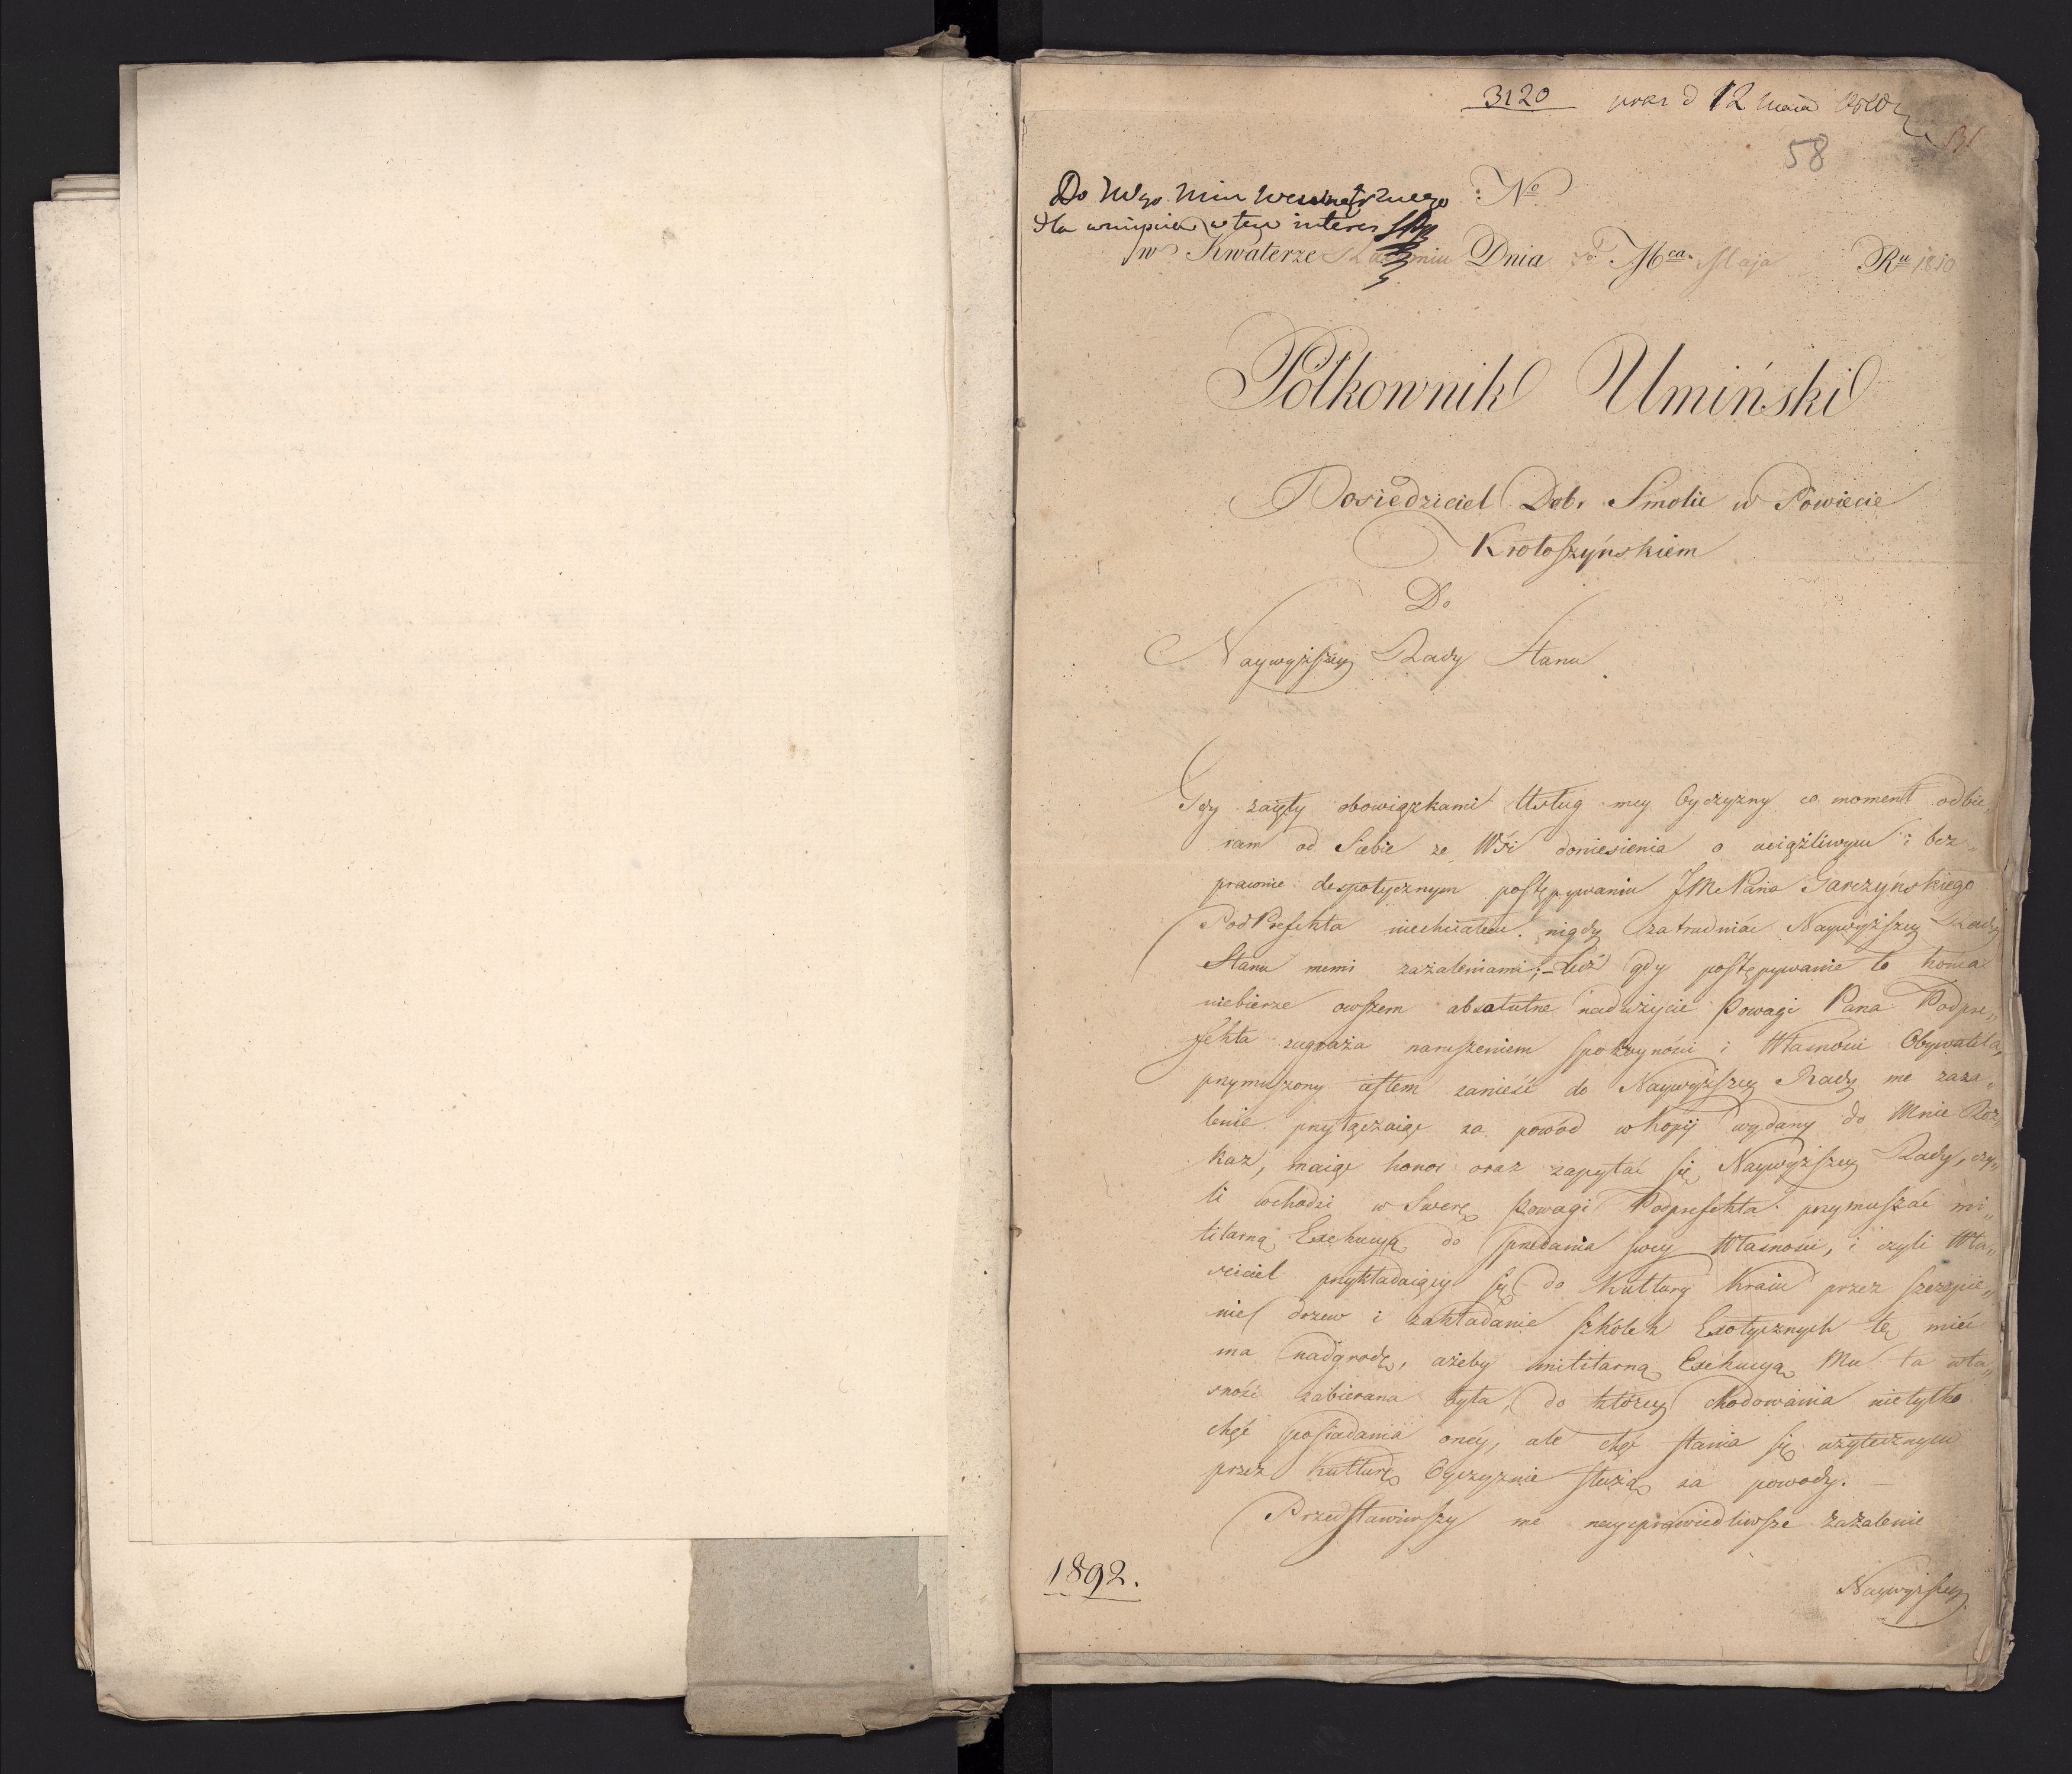 3120 d 12 Maia
58
Do Mgo Min Wewnętrznego : No
dla w tem interes
w Kwaterze Dnia Mca Maja Ru 1810
Półkownik Umiński
Posiedziciel Dobr Smolic w Powiecie
Krotoszyńskiem
Do
Naywyższey Rady Stanu
Gdy zaięty obowiązkami Usług mey Oyczyzny co moment odbie„
ram od Siebie ze Wsi doniesienia o uciążliwym i bez„
prawnie despotycznym postępywaniu JM Pana Garczyńskiego
PodPrefekta niechciałem nigdy zatrudniać Naywyższey Rady
Stanu memi zażaleniami; – Lecz gdy postępywanie to końca
niebierze owszem absolutne nadużycie Powagi Pana Podpre„
fekta zagraża naruszeniem spokoyności i Własności Obywatela,
przymuszony iestem zanieść do Naywyższey Rady me zaża„
lenie przyłączaiąc za powód w kopij wydany do Mnie Roz„
kaz, maiąc honor oraz zapytać się Naywyższey Rady, czy„
li wchodzi w Sferę Powagi Podprefekta przymuszać mi„
litarną Exekucyą do sprzedania swey Własności, i czyli Wła„
ściciel przykładaiący się do Kultury Kraiu przez szczepie„
nie drzew i zakładanie szkółek Exotycznych tę mieć
ma nadgrodę, ażeby militarną Exekucyą Mu ta wła„
sność zabierana była, do którey chodowania nietylko
chęć posiadania oney, ale chęć stania się użytecznym
przez kulturę Oyczyznie służą za powody. –
Przedstawiwszy me naysprawiedliwsze zażalenie
1892.
Naywyższey